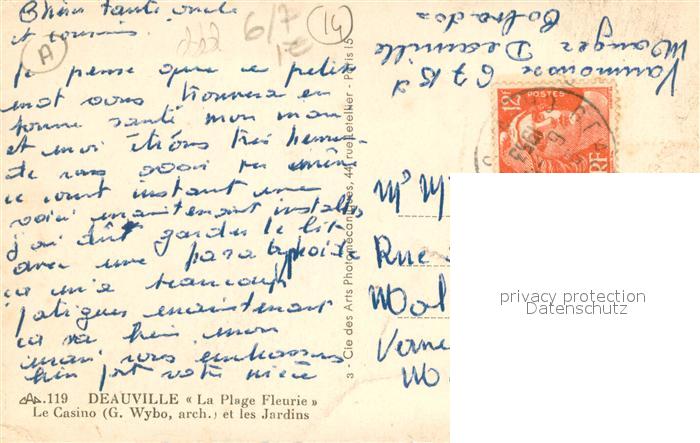 Chère tante oncle
et cousins.
je pense que ce petit
mot vous trouvera en
bonne santé mon mari
et moi étions très heureux
de vous voir
ce court instant une
voici maintenant installés
j'ai dût garder le lit
avec une
ça m'a beaucoup
fatiguée maintenant
ça va bien mon
mari vous embrasse
bien fort votre nièce
A
222
6/7
14
67 Bd
Mauger Deauville
Calvados
POSTES
12F
RF
1953
Mr M
Rue
Mol
Verne
M
3 - Cie des Arts Photomécaniques, 44, rue Letellier - Paris 15
privacy protection
Datenschutz
.119 DEAUVILLE « La Plage Fleurie »
Le Casino (G. Wybo, arch.) et les Jardins